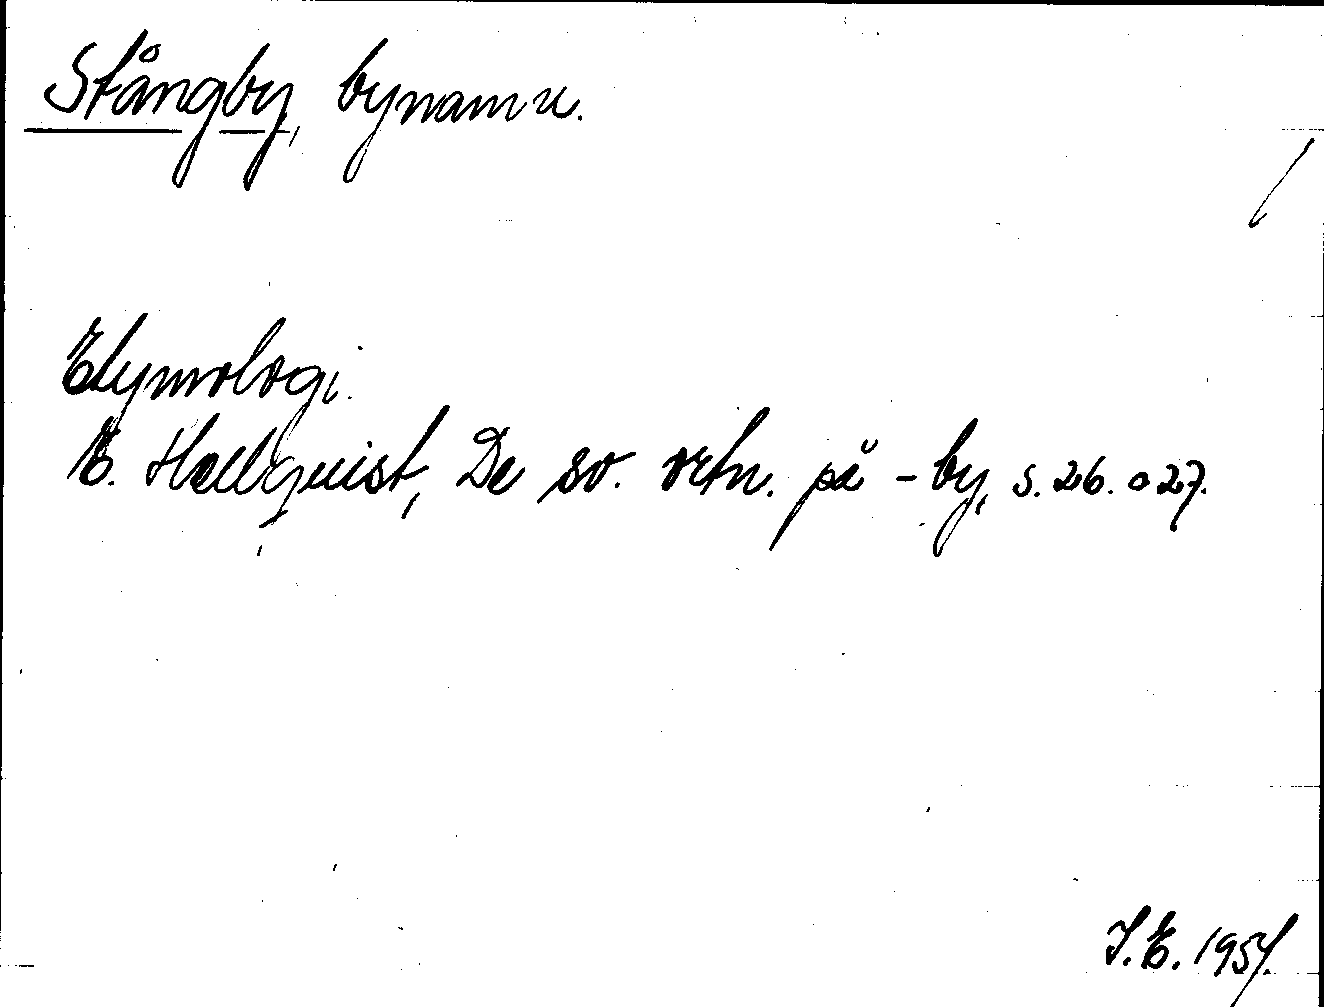 Stångby, bynamn.
Etymologi.
E. Hellquist, De sv. ortn. på -by, s. 26. o 27.
I.E. 1954.